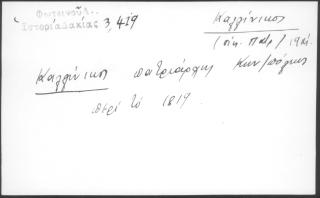 Φωτεινοῦ,
Ἱστορία Δακίας 3, 419
Καλλίνικος
(οἰκ. Πατρ) 19 αἰ.
Καλλίνικος πατριάρχης Κων/πόλεως
περί τό 1819